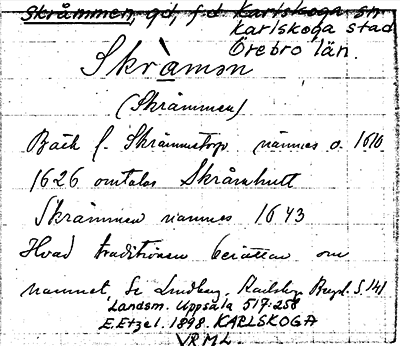 Skråmmen, gd, f d Karlskoga sn
Karlskoga stad
Örebro län.
Skràmən
(Skråmmen)
Bäck f. Skråmmstorp nämnes o. 1610.
1626 omtalas Skråmhult
Skråmmen nämnes 1643
Hvad traditionen berättar om
namnet, se Lindberg, Karlskoga Bergsl. S. 141
Landsm. Uppsala 517:258
E. Etzel. 1898. KARLSKOGA
VRML.